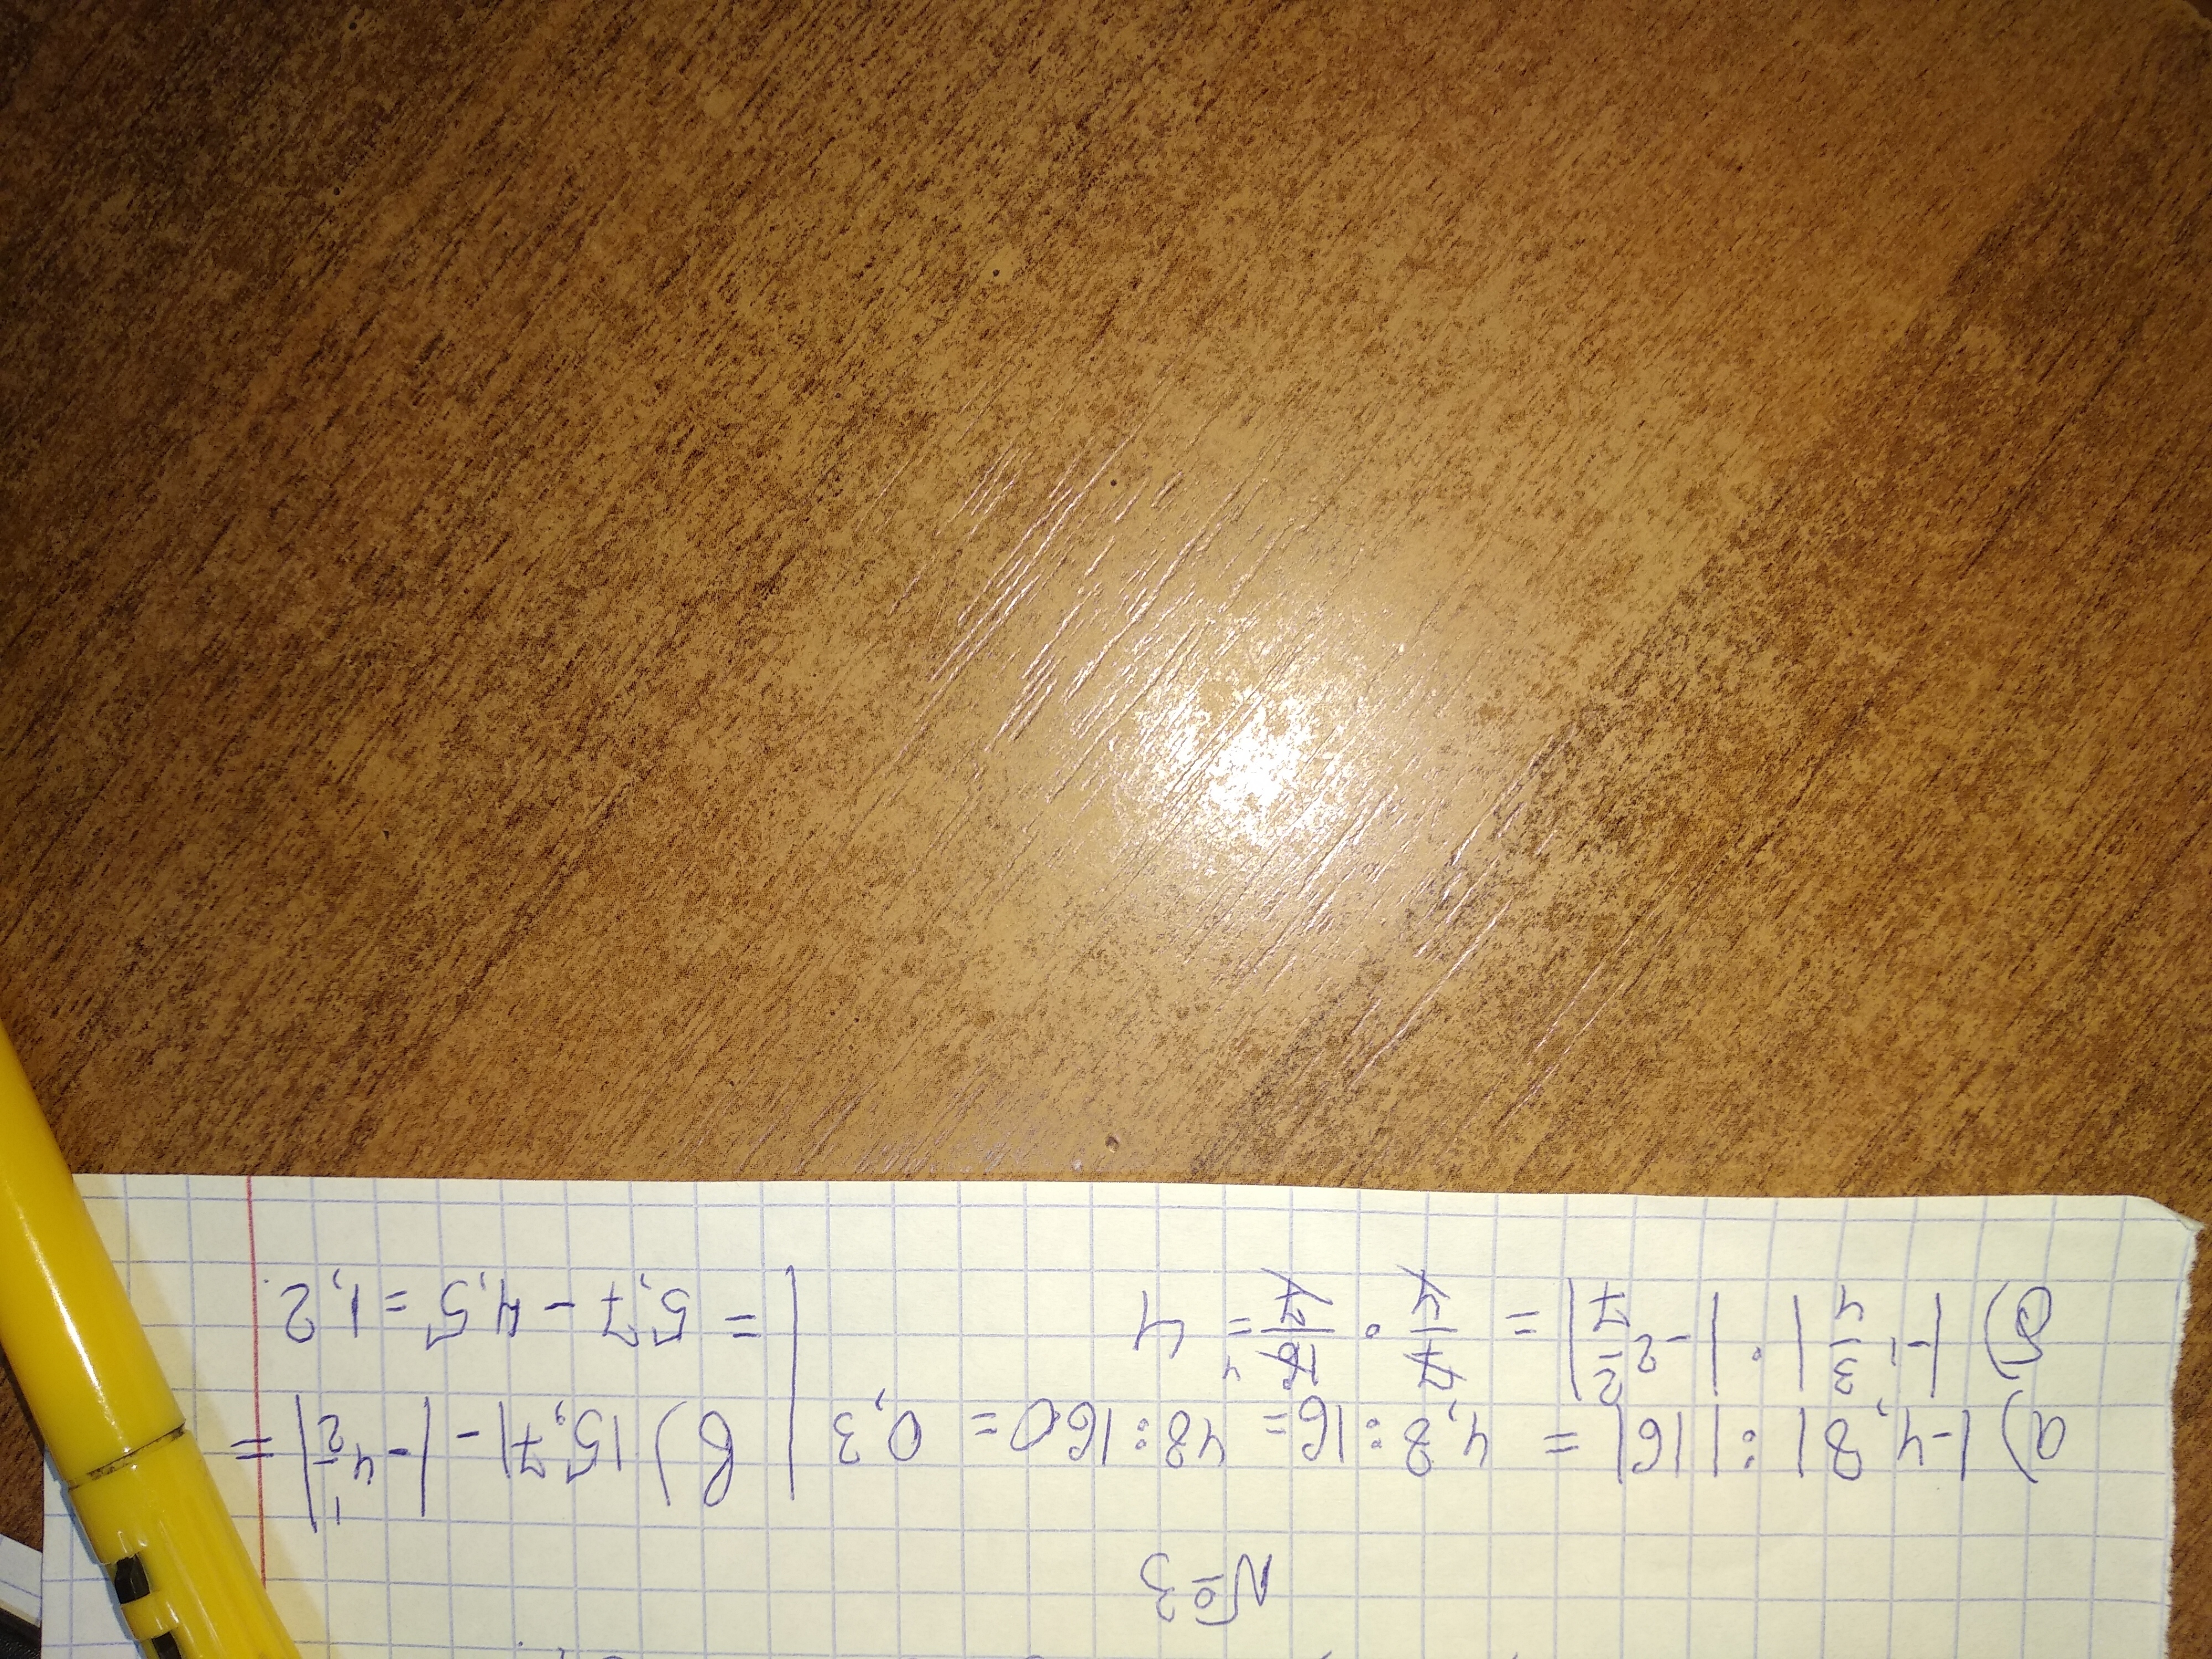 №3
а) |-4,8| : |16| = 4,8:16= 48:160= 0,3 | в) |5,7|-|-4 1/2|=
б) |-1 3/4| · |-2 2/7| = 7/4 · 16/7 = 4 | = 5,7-4,5 = 1,2.